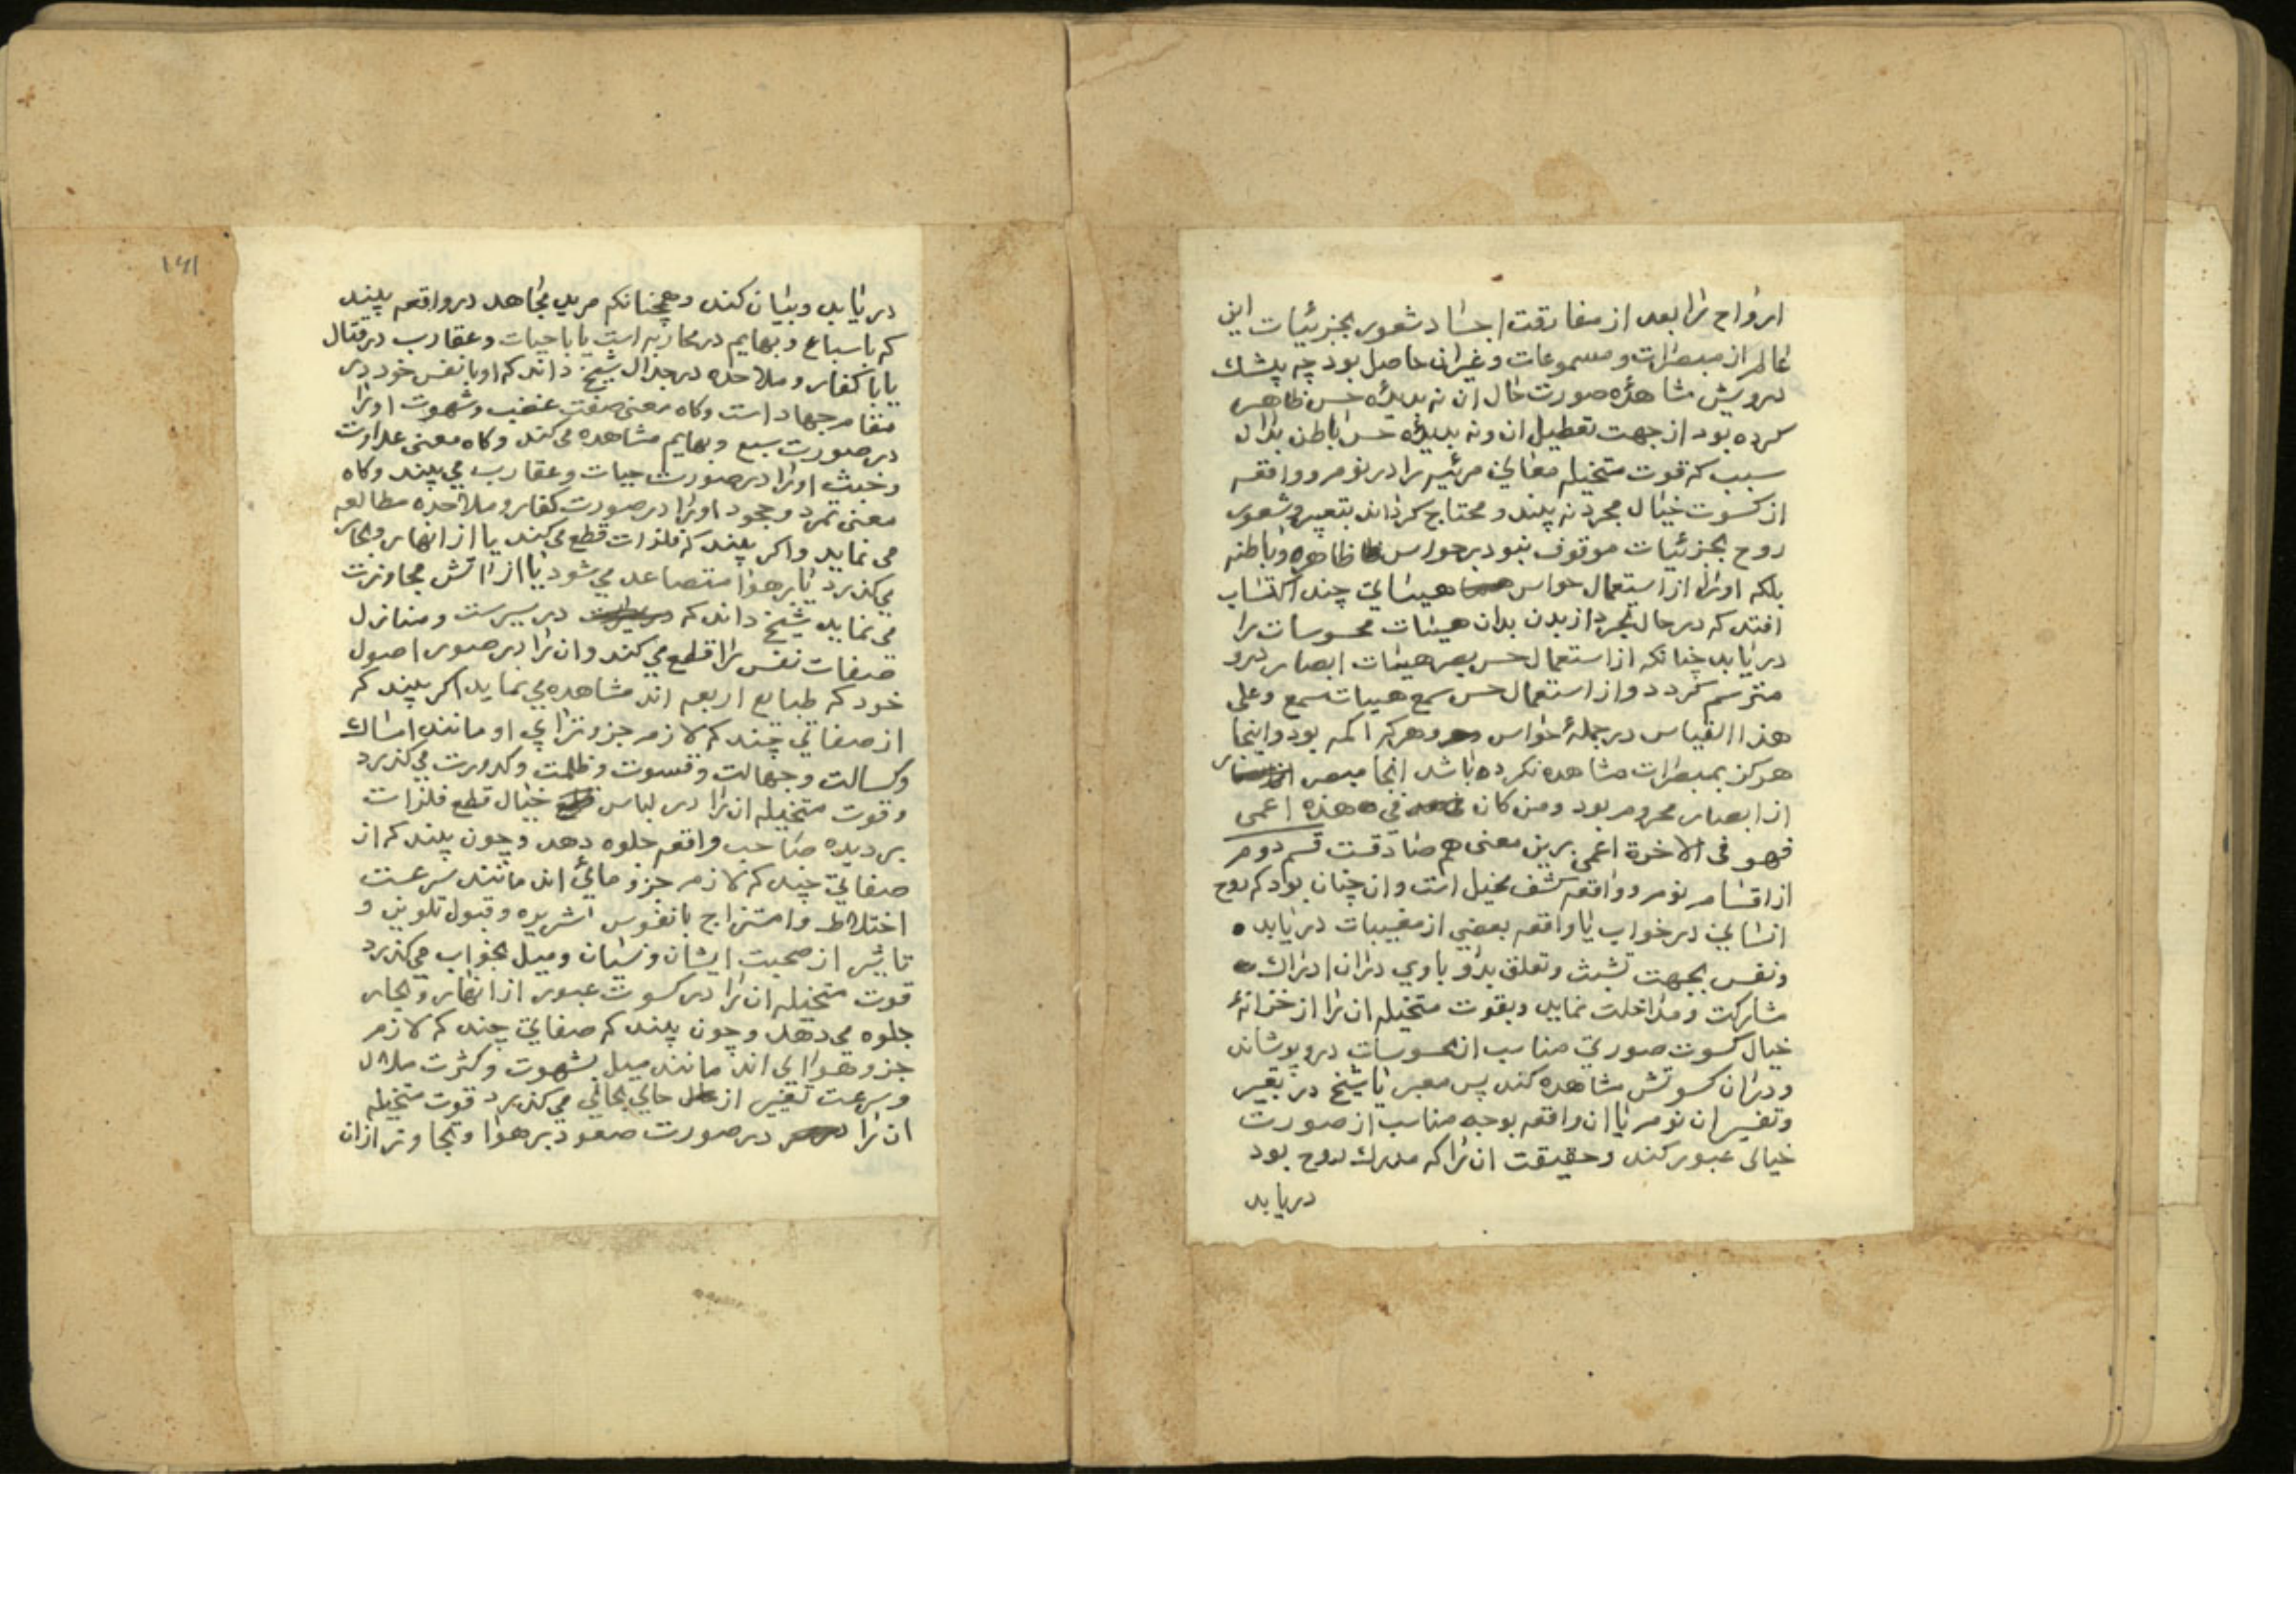 ارواح را بعد از مفارقت اجساد شعور بجزئيات اين
عالم از مبصرات و مسموعات و غيران حاصل بود چه پيشك
درويش مشاهده صورت حال ان نه بديده حس ظاهر
كرده بود از جهت تعطيل ان و نه بديده حس باطن بدان
سبب كه قوت متخيله معاني مرئيه را در نوم و واقعه
از كسوت خيال مجرد نه بيند و محتاج كرداند بتعبير و شعور
روح بجزئيات موقوف نبود بر حواس ظاهره و باطنه
بلكه او را از استعمال حواس هيئاتي چند اكتساب
افتد كه در حال تجرد از بدن بدان هيئات محسوسات را
دريابد چنانكه از استعمال حس بصر هيئات ابصار درو
مترسم كردد و از استعمال حس سمع هيبات سمع و على
هذا القياس در جمله حواس و هركه اكمه بود و اينجا
هركز بمبصرات مشاهده نكرده باشد انجا مبصر
از ابصار محروم بود و من كان فى هذه اعمى
فهو فى الاخرة اعمى برين معنى هم صادقست قسم دوم
از اقسام نوم و واقعه كشف مخيل است و ان چنان بود كه روح
انساني در خواب يا واقعه بعضي از مغيبات دريابد
و نفس بجهت تشبث و تعلق بدو با وي در ان ادراك
مشاركت و مداخلت نمايد و بقوت متخيله ان را از خزانۀ
خيال كسوت صورتي مناسب از محسوسات درو پوشاند
و در ان كسوتش مشاهده كند پس معبر يا شيخ در تعبير
و تفسير ان نوم يا ان واقعه بوجه مناسب از صورت
خيالى عبور كند و حقيقت ان را كه مدرك روح بود
دريابد
١٤١
دريابد و بيان كند و همچنانكه مريد مجاهد در واقعه بيند
كه با سباع و بهايم در محاربه است يا با حيات و عقارب در قتال
يا با كفار و ملاحده در جدال شيخ داند كه او با نفس خود در
مقام جهاد است و كاه معنى صفت غضب و شهوت او را
در صورت سبع و بهايم مشاهده مى كند و كاه معنى عداوت
و خبث او را در صورت حيات و عقارب مي بيند و كاه
معنى تمرد و جحود او را در صورت كفار و ملاحده مطالعه
مى نمايد و اكر بيند كه فلذات قطع مى كند يا از انهار و بحار
مي كذرد يا بر هوا متصاعد مي شود يا از اتش مجاوزت
مى نمايد شيخ داند كه در سيرست و منازل
صفات نفس را قطع مي كند و ان را در صور اصول
خود كه طبايع اربعه اند مشاهده مي نمايد اكر بيند كه
از صفاتي چند كه لازم جزو ترابي او مانند امساك
و كسالت و جهالت و قسوت و ظلمت و كدورت مي كذرد
و قوت متخيله ان را در لباس خيال قطع فلزات
بر ديده صاحب واقعه جلوه دهد و چون بيند كه از
صفاتي چند كه لازم جزو مائي اند مانند سرعت
اختلاط و امتزاج با نفوس شريره و قبول تلوين و
تاثير از صحبت ايشان و نسيان و ميل بخواب مي كذرد
قوت متخيله ان را در كسوت عبور از انهار و بحار
جلوه مي دهد و چون بيند كه صفاتي چند كه لازم
جزو هوايى اند مانند ميل بشهوت و كثرت ملال
و سرعت تغيير از حالي بحالي مي كذرد قوت متخيله
ان را در صورت صعود بر هوا و تجاوز از ان